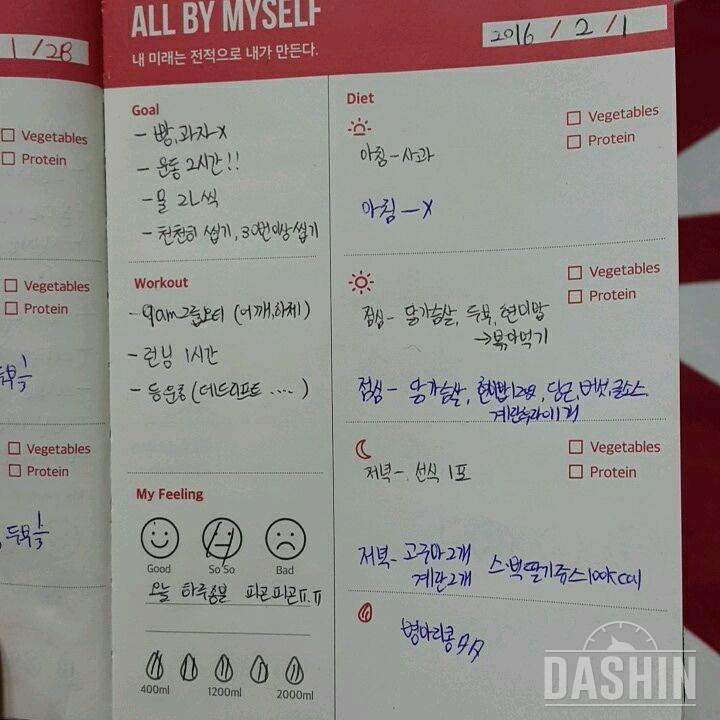 1 / 28
Vegetables
Protein
Vegetables
Protein
Vegetables
Protein
두부 1/3
ALL BY MYSELF
내 미래는 전적으로 내가 만든다.
2016 / 2 / 1
Goal
- 빵, 과자-X
- 운동 2시간!!
- 물 2L씩
- 천천히 씹기, 30번이상 씹기
Workout
- 9am그룹요티 (어깨,하체)
- 런닝 1시간
- 등운동 (데드리프트 ····)
My Feeling
Good
So So
Bad
오늘 하루종일 피곤피곤ㅠ.ㅠ
400ml
1200ml
2000ml
Diet
Vegetables
Protein
아침 - 사과
아침 - X
Vegetables
Protein
점심 - 닭가슴살, 두부, 현미밥
→볶아먹기
점심 - 닭가슴살, 당근, 버섯, 굴소스
계란후라이1개
Vegetables
Protein
저녁 - 선식 1포
저녁 - 고구마2개
계란2개
스벅딸기쥬스100kcal
병아리콩
DASHIN